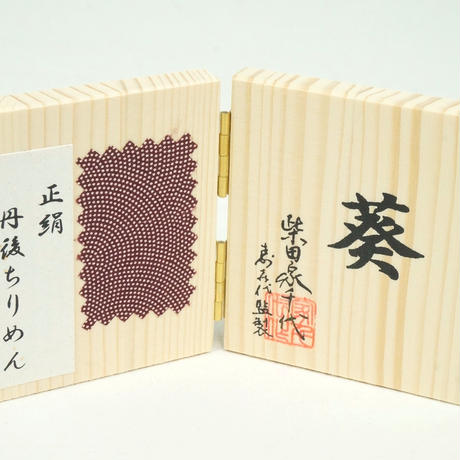 葵
柴田家千代
監製
正絹
丹後ちりめん